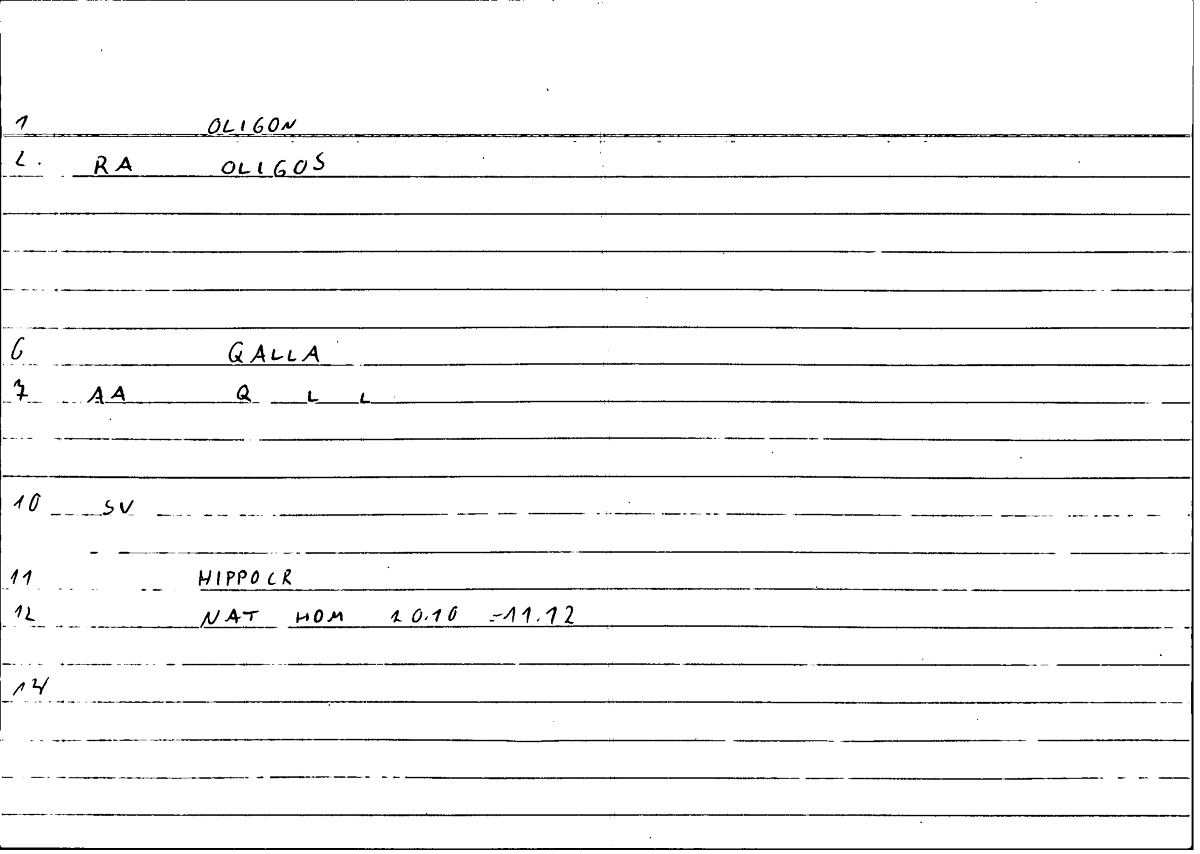 1 OLIGON
2. RA OLIGOS
6 QALLA
7 AA Q L L
10 SV
11 HIPPOCR
12 NAT HOM 20.10 -11.12
14